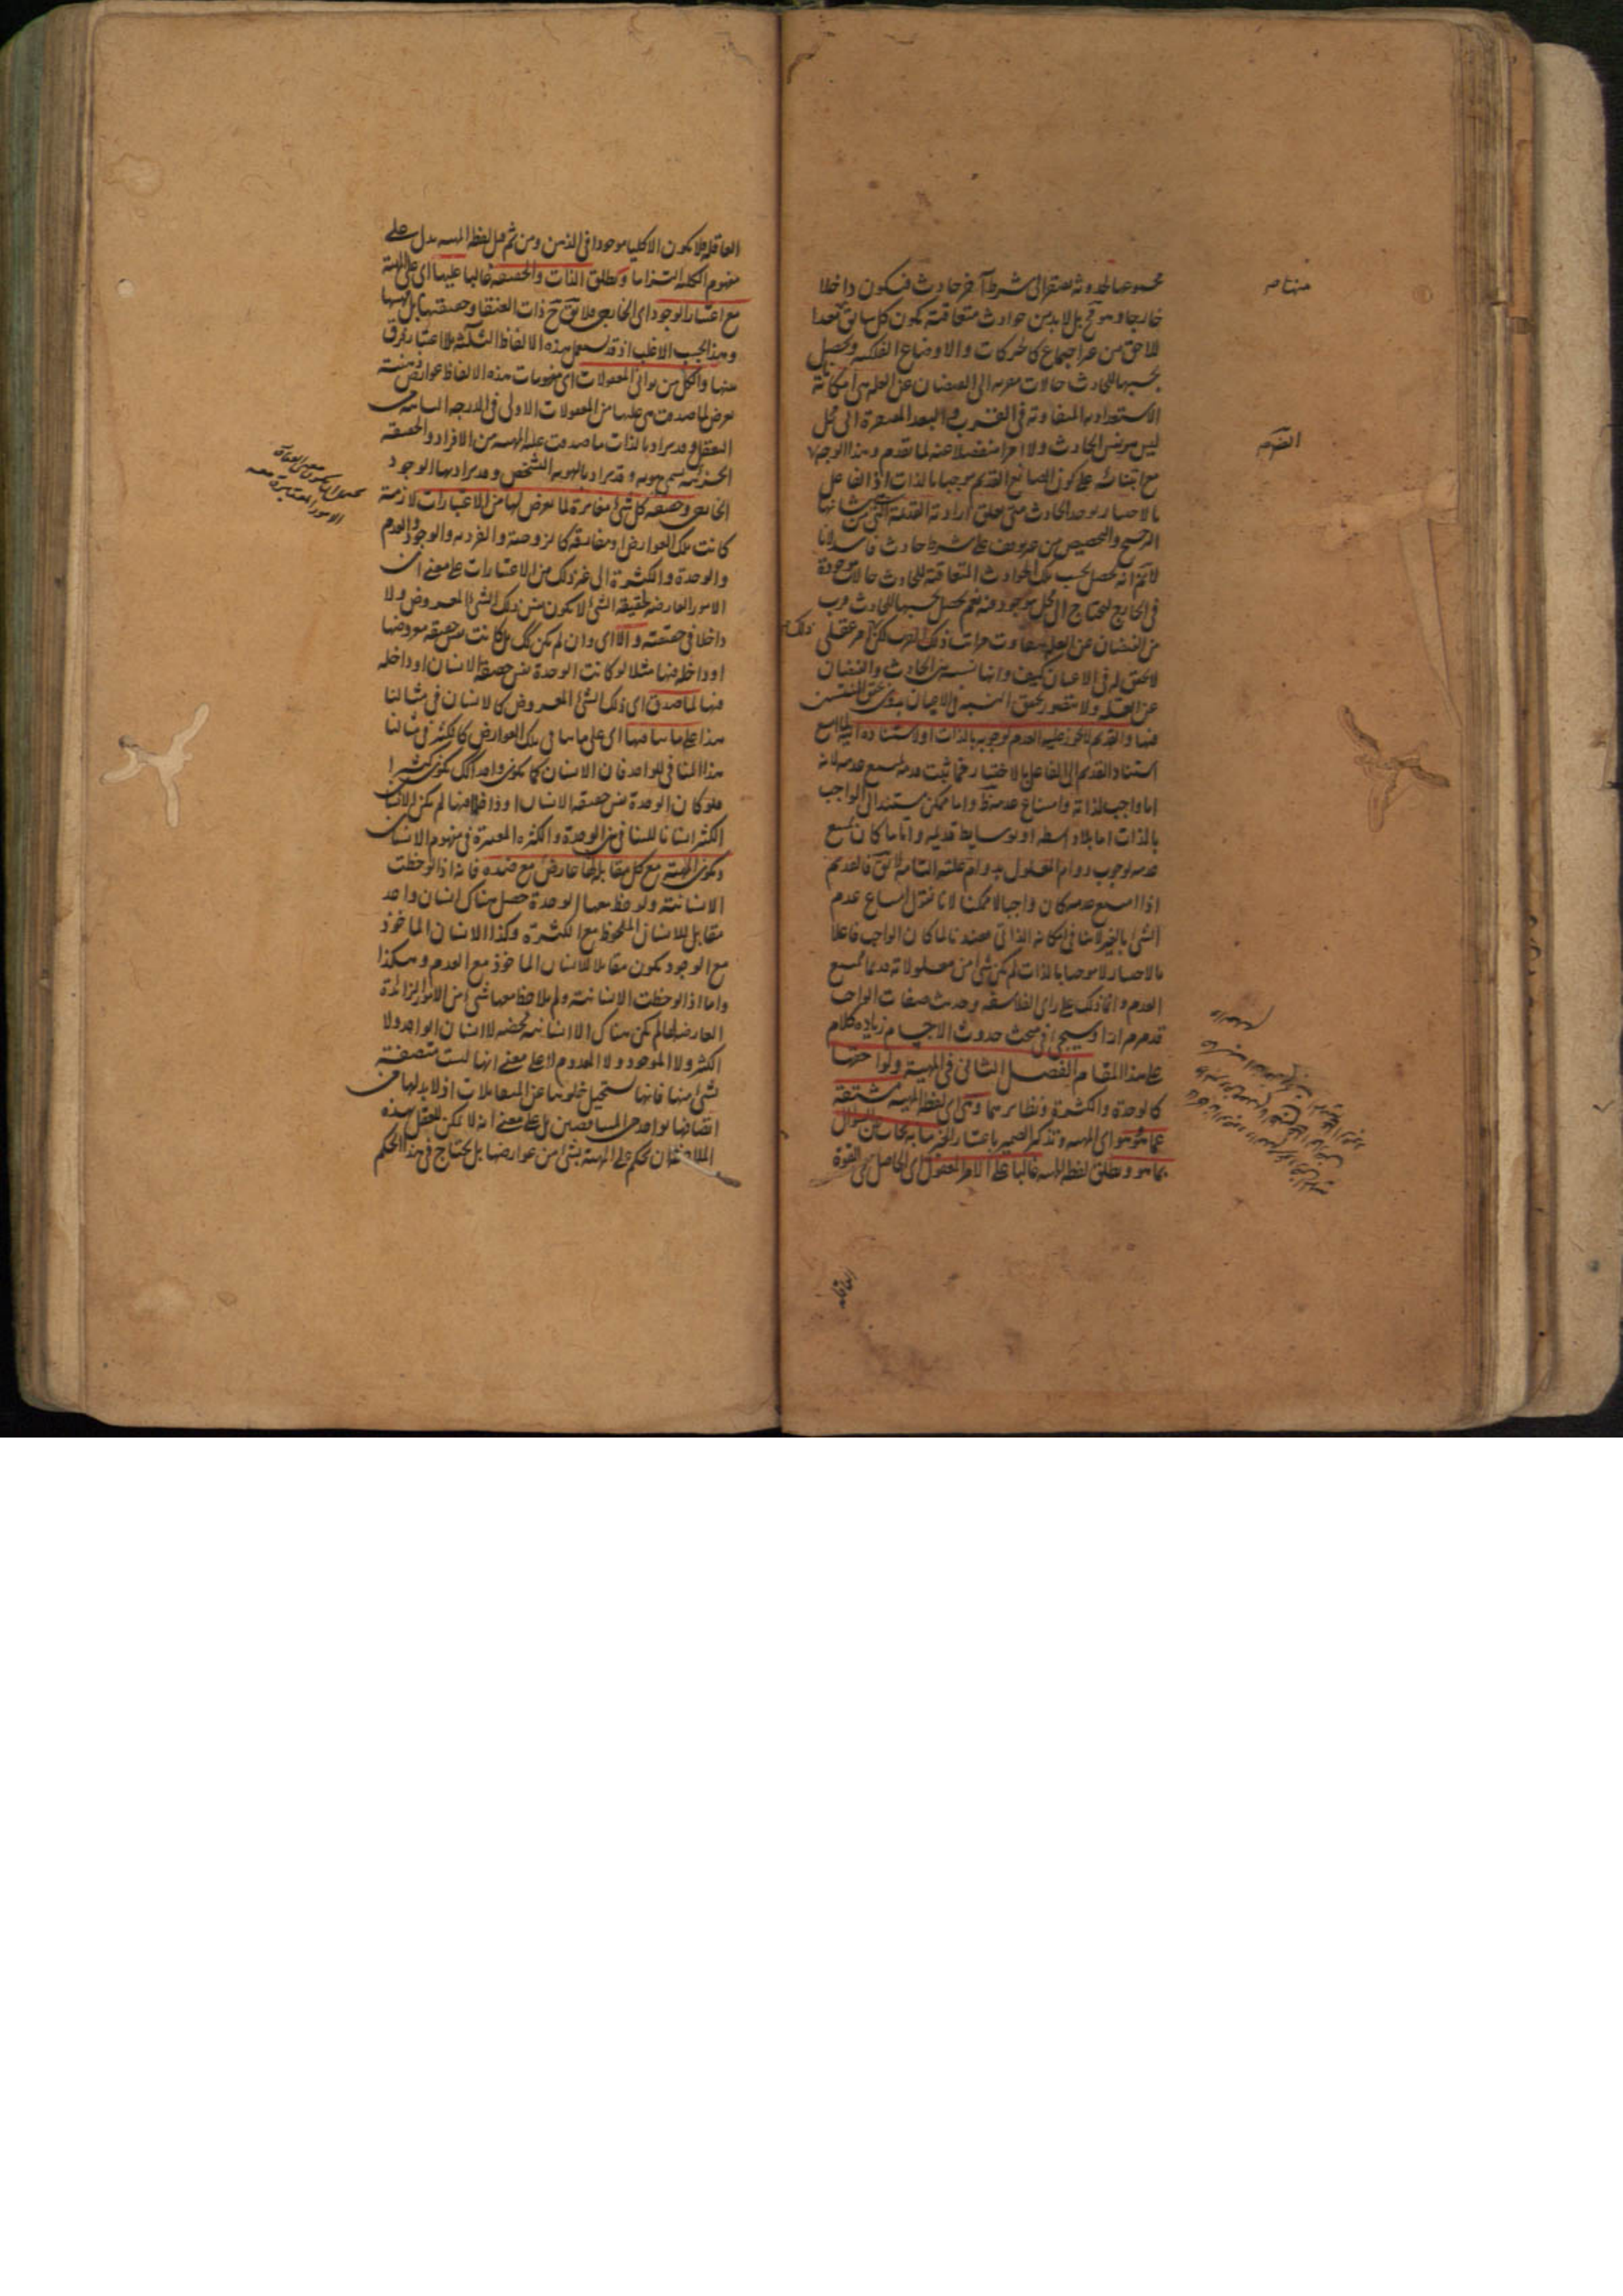 مجموعها لحدوثه مفتقرا الى شرط آخر حادث فيكون داخلا
خارجا وهو مح بل لابد من حوادث متعاقبة يكون كل سابق معدا
للاحق من غير اجتماع كالحركات والاوضاع الفلكية ويحصل
بحسبها للحادث حالات مقربة الى الفيضان عن العلة هى امكاناته
الاستعدادية المتفاوتة فى القرب والبعد المفتقرة الى محل
ليس هو نفس الحادث ولا امرا منفصلا عنه لما تقدم وهذا الوجه
مع ابتنائه على كون الصانع القديم موجبا بالذات اذ الفاعل
بالاختيار يوجد الحادث متى تعلق ارادته القديمة التى من شانها
الترجيح والتخصيص من غير توقف على شرط حادث فاسد لانا
لا نم انه يحصل بحسب تلك الحوادث المتعاقبة للحادث حالات موجودة
فى الخارج ليحتاج الى محل موجود فيه نعم يحصل بحسبها للحادث قرب
من الفيضان عن العلة يتفاوت مراتب ذلك القرب لكنه امر عقلى
لا تحقق له فى الاعيان كيف وانها نسبة بين الحادث والفيضان
عن العلة ولا يتصور تحقق النسبة فى الاعيان بدون تحقق المنتسبين
فيها والقديم لا يجوز عليه العدم لوجوبه بالذات او لاستناده اليه لما امتنع
استناد القديم الى الفاعل بالاختيار فما ثبت قدمه امتنع عدمه لانه
اما واجب لذاته وامتناع عدمه ظ واما ممكن يستند الى الواجب
بالذات اما بلا واسطة او بوسايط قديمة واياما كان يمتنع
عدمه لوجوب دوام المعلول بدوام علته التامة لا يق فالقديم
اذا امتنع عدمه كان واجبا لا ممكنا لانا نقول امتناع عدم
الشئ بالغير لا ينافى امكانه الذاتى فعندنا لما كان الواجب فاعلا
بالاختيار لا موجبا بالذات لم يكن شئ من معلولاته قديما ممتنع
العدم وانما ذلك على راى الفلاسفة وحديث صفات الواجب
قد مر مرارا وسيجئ فى مبحث حدوث الاجسام زيادة كلام
على هذا المقام الفصل الثانى فى المهية ولواحقها
كالوحدة والكثرة ونظايرهما وهى اى لفظ المهية مشتقة
عما هو هو اى المهية وتذكير الضمير باعتبار الخبر ما به يجاب عن السؤال
بما هو ويطلق لفظ المهية غالبا على الامر المعقول اى الحاصل فى القوة
العاقلة
العاقلة فلا يكون الا كليا موجودا فى الذهن ومن ثم قيل لفظ المهية يدل على
مفهوم الكلية التزاما ويطلق الذات والحقيقة غالبا عليها اى على المهية
مع اعتبار الوجود اى الخارجى فلا يق ح ذات العنقا وحقيقتها بل مهيتها
وهذا بحسب الاغلب اذ قد يستعمل هذه الالفاظ الثلثة بلا اعتبار فرق
بينها والكل من ثوانى المعقولات اى مفهومات هذه الالفاظ عوارض ذهنية
تعرض لما صدقت هى عليها من المعقولات الاولى فى الدرجة الثانية من
التعقل وقد يراد بالذات ما صدقت عليه المهية من الافراد والحقيقة
الجزئية تسمى هوية وقد يراد بالهوية التشخص وقد يراد بها الوجود
الخارجى وحقيقة كل شئ مغايرة لما يعرض لها من الاعتبارات لازمة
كانت تلك العوارض او مفارقة كالزوجية والفردية والوجود والعدم
والوحدة والكثرة الى غير ذلك من الاعتبارات على معنى ان
الامور العارضة لحقيقة الشئ لا يكون نفس ذلك الشئ المعروض ولا
داخلا فى حقيقته والا اى وان لم يكن كك بل كانت نفس حقيقة معروضها
او داخلة فيها مثلا لو كانت الوحدة نفس حقيقة الانسان او داخلة
فيها لما صدق اى ذلك الشئ المعروض كالانسان فى مثالنا
هذا على ما ينافيها اى على ما ينافى تلك العوارض كالكثير فى مثالنا
هذا المنافى للواحد فان الانسان كما يكون واحدا كك يكون كثيرا
فلو كان الوحدة نفس حقيقة الانسان او داخلة فيها لم يكن الانسان
الكثير انسانا للتنافى بين الوحدة والكثرة المعتبرة فى مفهوم الانسان
ويكون المهية مع كل مقابل لها عارض مع ضده فانه اذا لوحظت
الانسانية ولوحظ معها الوحدة حصل هناك انسان واحد
مقابل للانسان الملحوظ مع الكثرة وكذا الانسان الماخوذ
مع الوجود يكون مقابلا للانسان الماخوذ مع العدم وهكذا
واما اذا لوحظت الانسانية ولم يلاحظ معها شئ من الامور الزائدة
العارضة لها لم يكن هناك الا انسانية محضة لا انسان الواحد ولا
الكثير ولا الموجود ولا المعدوم لا على معنى انها ليست متصفة
بشئ منها فانها يستحيل خلوها عن المتقابلات اذ لا بد لها من
اتصافها بواحد من المتناقضين بل على معنى انه لا يمكن للعقل بهذه
الملاحظة ان يحكم على المهية بشئ من عوارضها بل يحتاج فى هذا الحكم